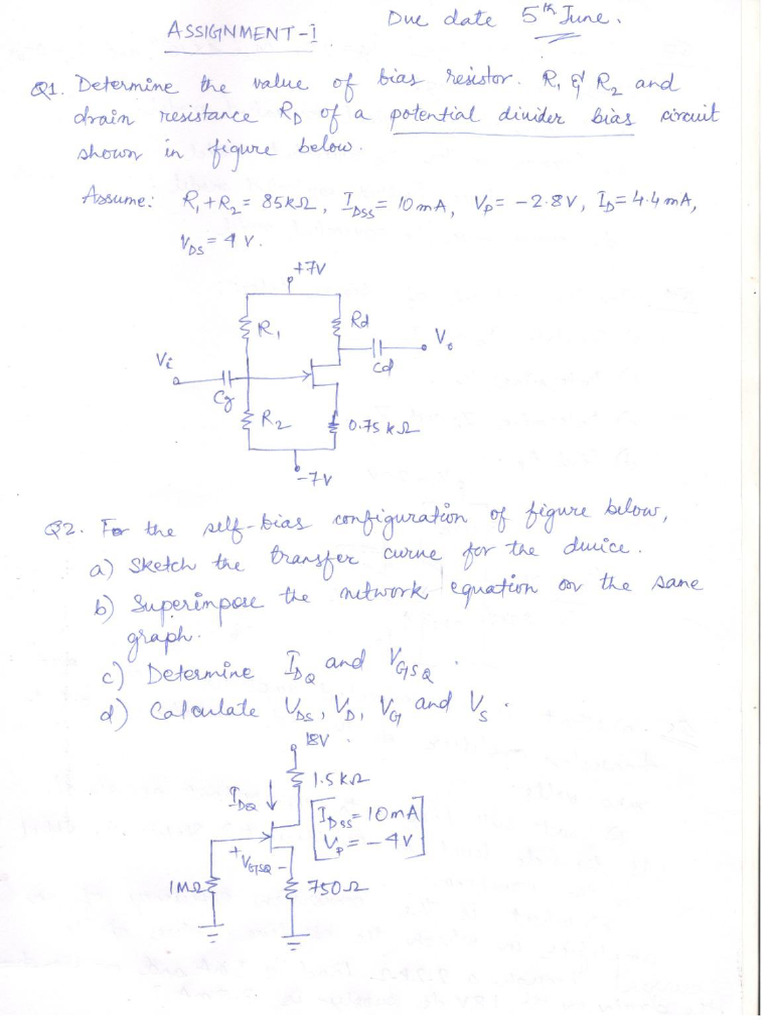 ASSIGNMENT-I
Due date 5th June.
Q1. Determine the value of bias resistor. R1 & R2 and
drain resistance RD of a potential divider bias circuit
shown in figure below.
Assume: R1+R2 = 85kΩ, IDSS = 10mA, VP = -2.8V, ID = 4.4mA,
VDS = 4V.
+7V
R1
Rd
Vo
Vi
Cd
Cg
R2
0.75 kΩ
-7V
Q2. For the self-bias configuration of figure below,
a) Sketch the transfer curve for the device.
b) Superimpose the network equation on the same
graph.
c) Determine IDQ and VGSQ.
d) Calculate VDS, VD, VG and VS.
18V
1.5kΩ
IDQ
IDSS = 10mA
VP = -4V
+ VGSQ -
1MΩ
750Ω